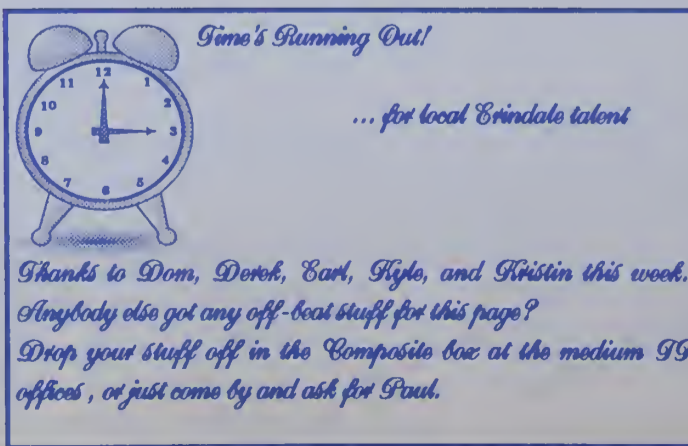 Time's Running Out!
... for local Erindale talent
12
11 1
10 2
9 3
8 4
7 5
6
Thanks to Dom, Derek, Earl, Kyle, and Kristin this week.
Anybody else got any off-beat stuff for this page?
Drop your stuff off in the Composite box at the medium II
offices, or just come by and ask for Paul.